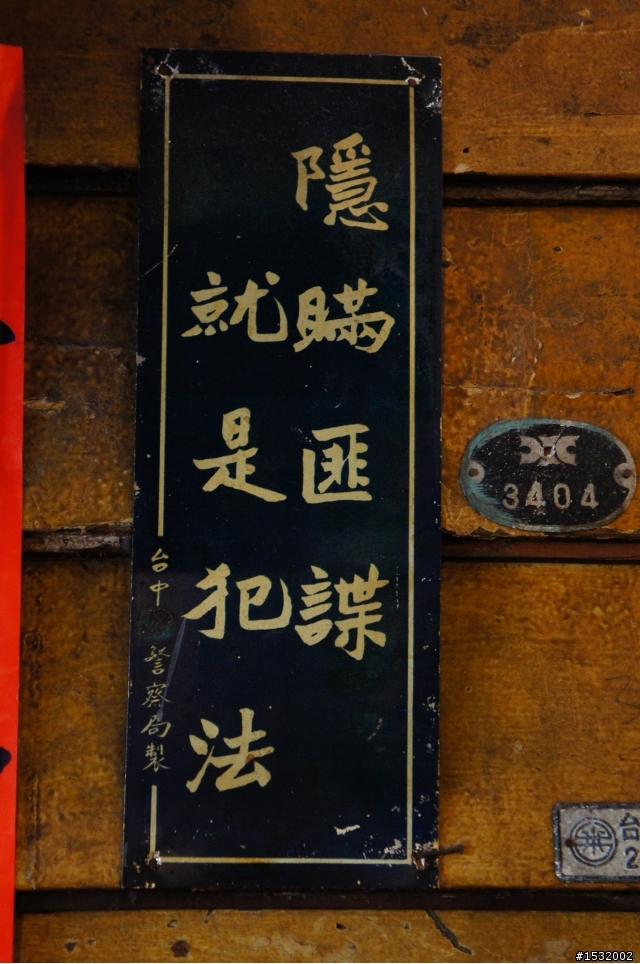 隱瞞匪諜
就是犯法
台中 警察局製
3404
台
2
#1532002